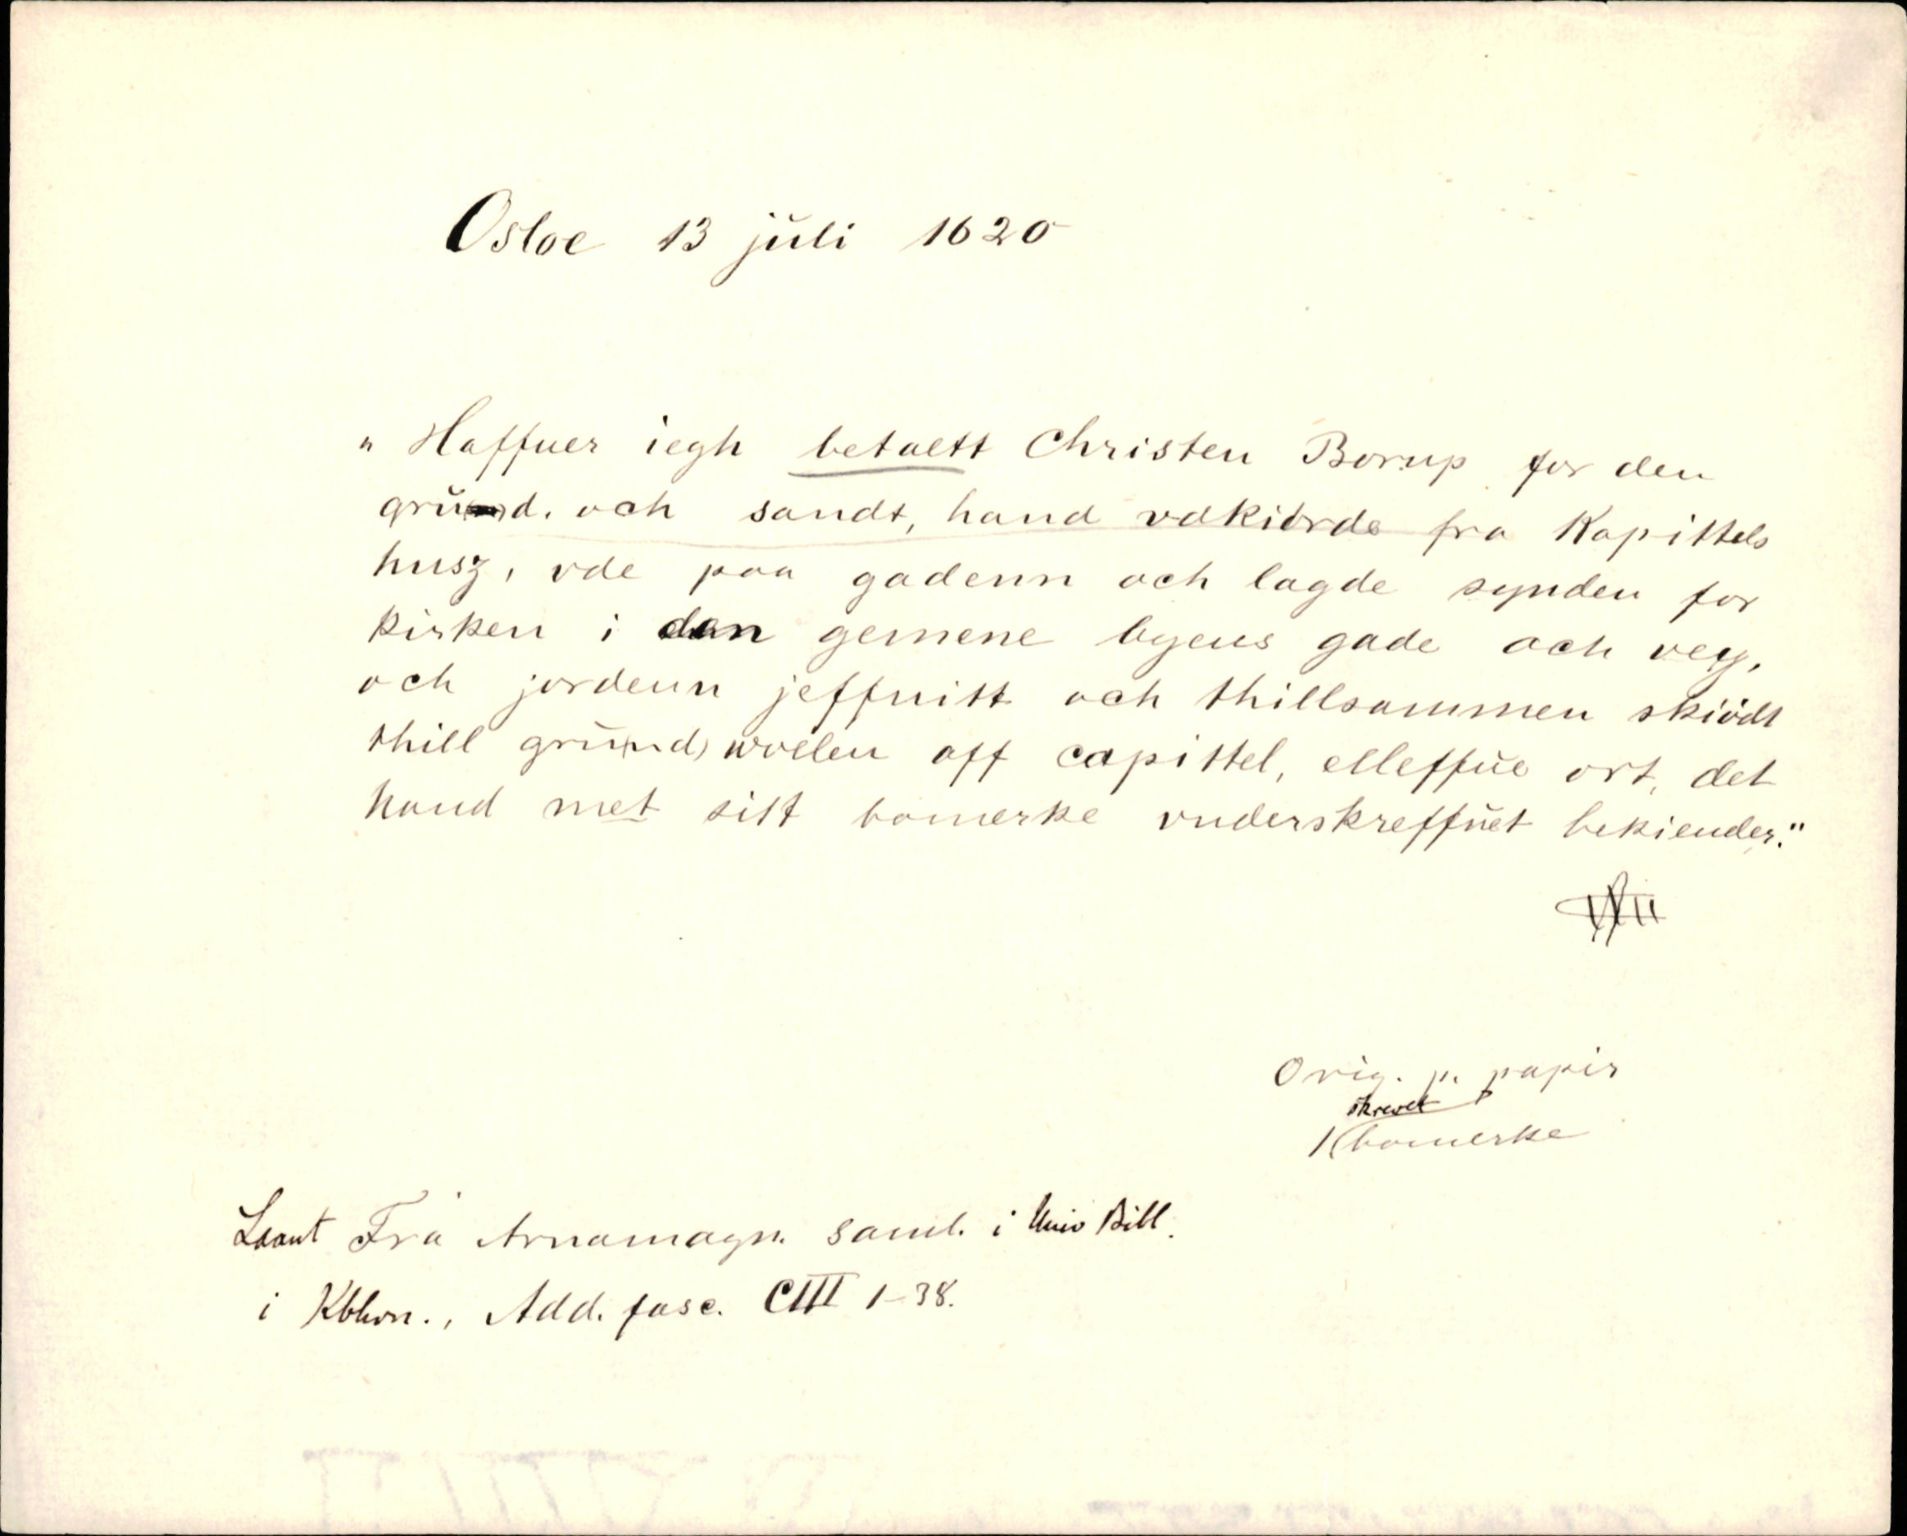 Osloe 13 jŭli 1620
" Haffuer iegh betaett Christen Borup for den
grŭ(n)d. och sandt, hand vdkiörde fra Kapittels
husz, vde paa gadenn och lagde synden for
kirken i den gemene byens gade och vey,
och jordenn jeffnitt och thillsammen skiödt
thill grŭ(n)d) wolen aff capittel, elleffŭe ort, det
hand met sitt bomerke vnderskreffŭet bekiender."
Orig. p. papir
skrevet
1 bomerke
Laant Fra Arnamagn. saml. i Univ Bibl.
i Kbhvn., Add. fasc. CIII 1-38.